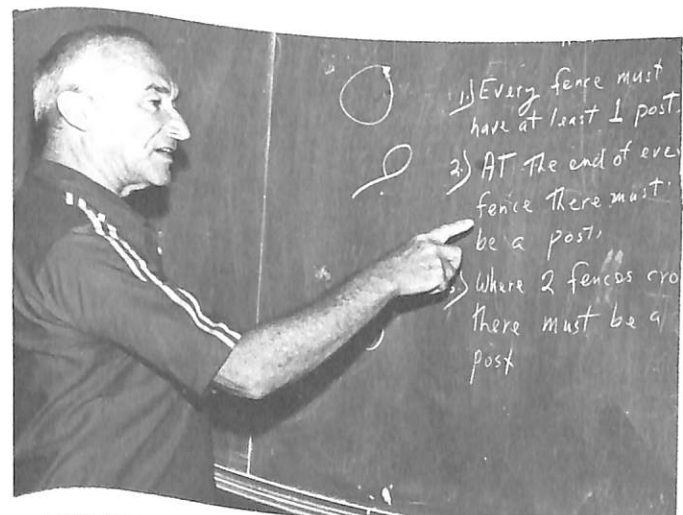 1.) Every fence must
have at least 1 post.
2.) AT the end of eve
fence there must
be a post.
.) Where 2 fences cro
there must be a
post